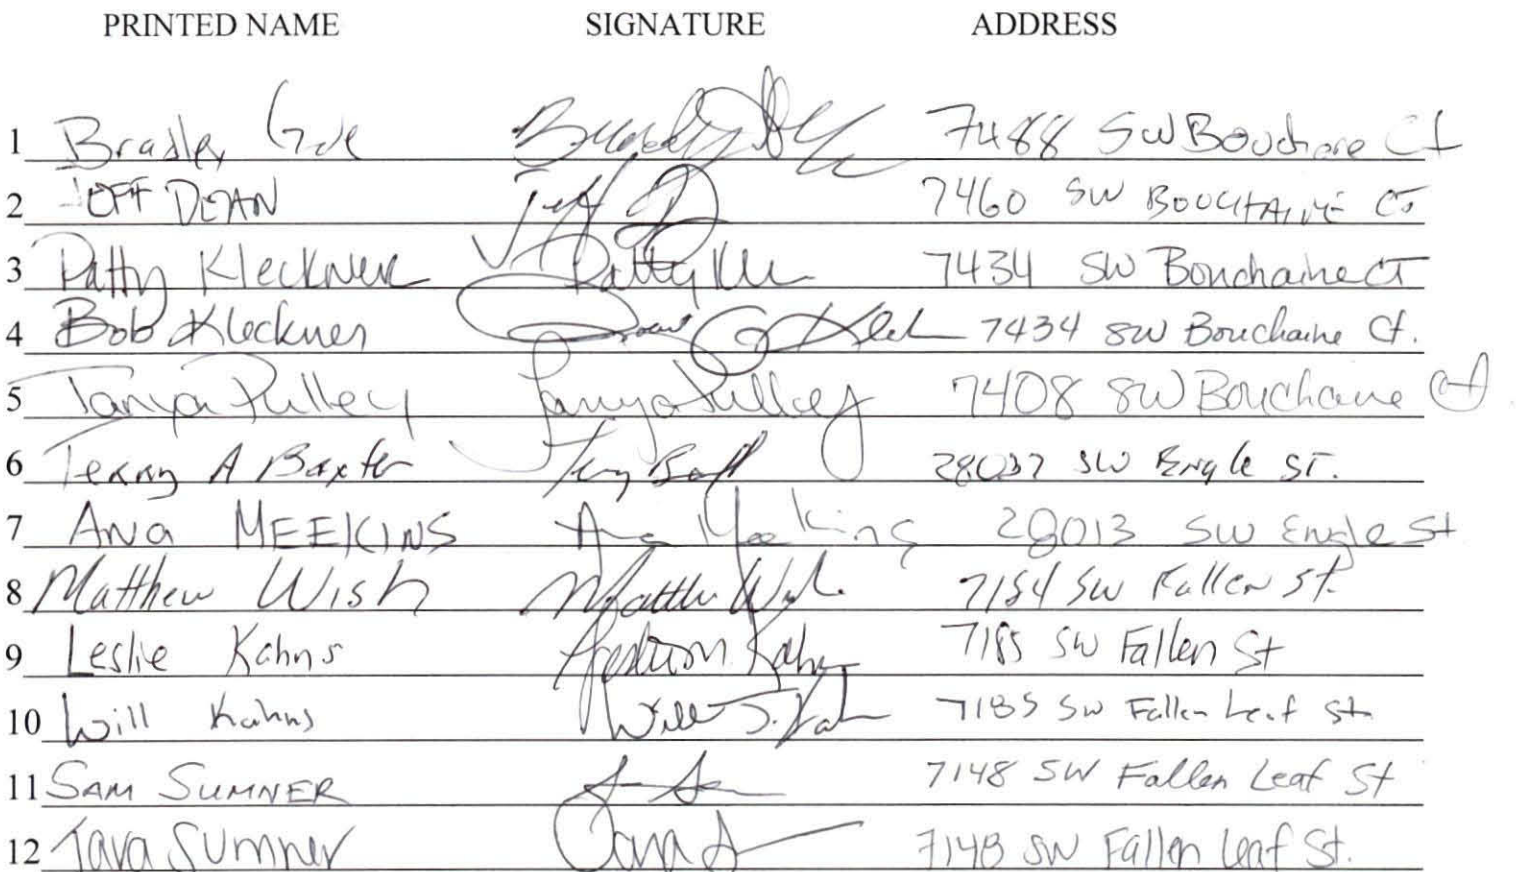 PRINTED NAME SIGNATURE ADDRESS
1 Bradley 7488 SW Bouchaine Ct
2 JEFF DEAN Jeff D 7460 SW BOUCHAINE CT
3 Patty Kleckner Patty Kle 7434 SW Bouchaine CT
4 Bob Kleckner 7434 SW Bouchaine Ct.
5 Tanya Pulley Tanya Pulley 7408 SW Bouchaine Ct.
6 Terry A Baxter Terry SW Engle ST.
7 Ana MEEKINS Ana Meekins 28013 SW Engle St
8 Matthew Wish Matthew 7184 SW Fallen St.
9 Leslie Kahns Kahns 7185 SW Fallen St
10 Will Kahns Will J. 7185 SW Fallen Leaf St
11 SAM SUMNER 7148 SW Fallen Leaf St
12 Tara Sumner Tara S 7148 SW Fallen Leaf St.